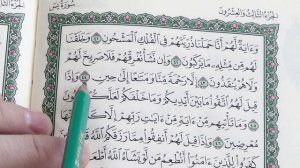 الجزء الثالث والعشرون سورة يس
وَءَايَةٌ لَّهُمْ أَنَّا حَمَلْنَا ذُرِّيَّتَهُمْ فِي ٱلْفُلْكِ ٱلْمَشْحُونِ ٤١ وَخَلَقْنَا
لَهُم مِّن مِّثْلِهِۦ مَا يَرْكَبُونَ ٤٢ وَإِن نَّشَأْ نُغْرِقْهُمْ فَلَا صَرِيخَ لَهُمْ
وَلَا هُمْ يُنقَذُونَ ٤٣ إِلَّا رَحْمَةً مِّنَّا وَمَتَٰعًا إِلَىٰ حِينٍ ٤٤ وَإِذَا
قِيلَ لَهُمُ ٱتَّقُوا۟ مَا بَيْنَ أَيْدِيكُمْ وَمَا خَلْفَكُمْ لَعَلَّكُمْ تُرْحَمُونَ
٤٥ وَمَا تَأْتِيهِم مِّنْ ءَايَةٍ مِّنْ ءَايَٰتِ رَبِّهِمْ إِلَّا كَانُوا۟ عَنْهَا
مُعْرِضِينَ ٤٦ وَإِذَا قِيلَ لَهُمْ أَنفِقُوا۟ مِمَّا رَزَقَكُمُ ٱللَّهُ قَالَ
ءَامَنُوٓا۟ أَنُطْعِمُ مَن لَّوْ يَشَآءُ ٱللَّهُ أَطْعَمَهُۥٓ